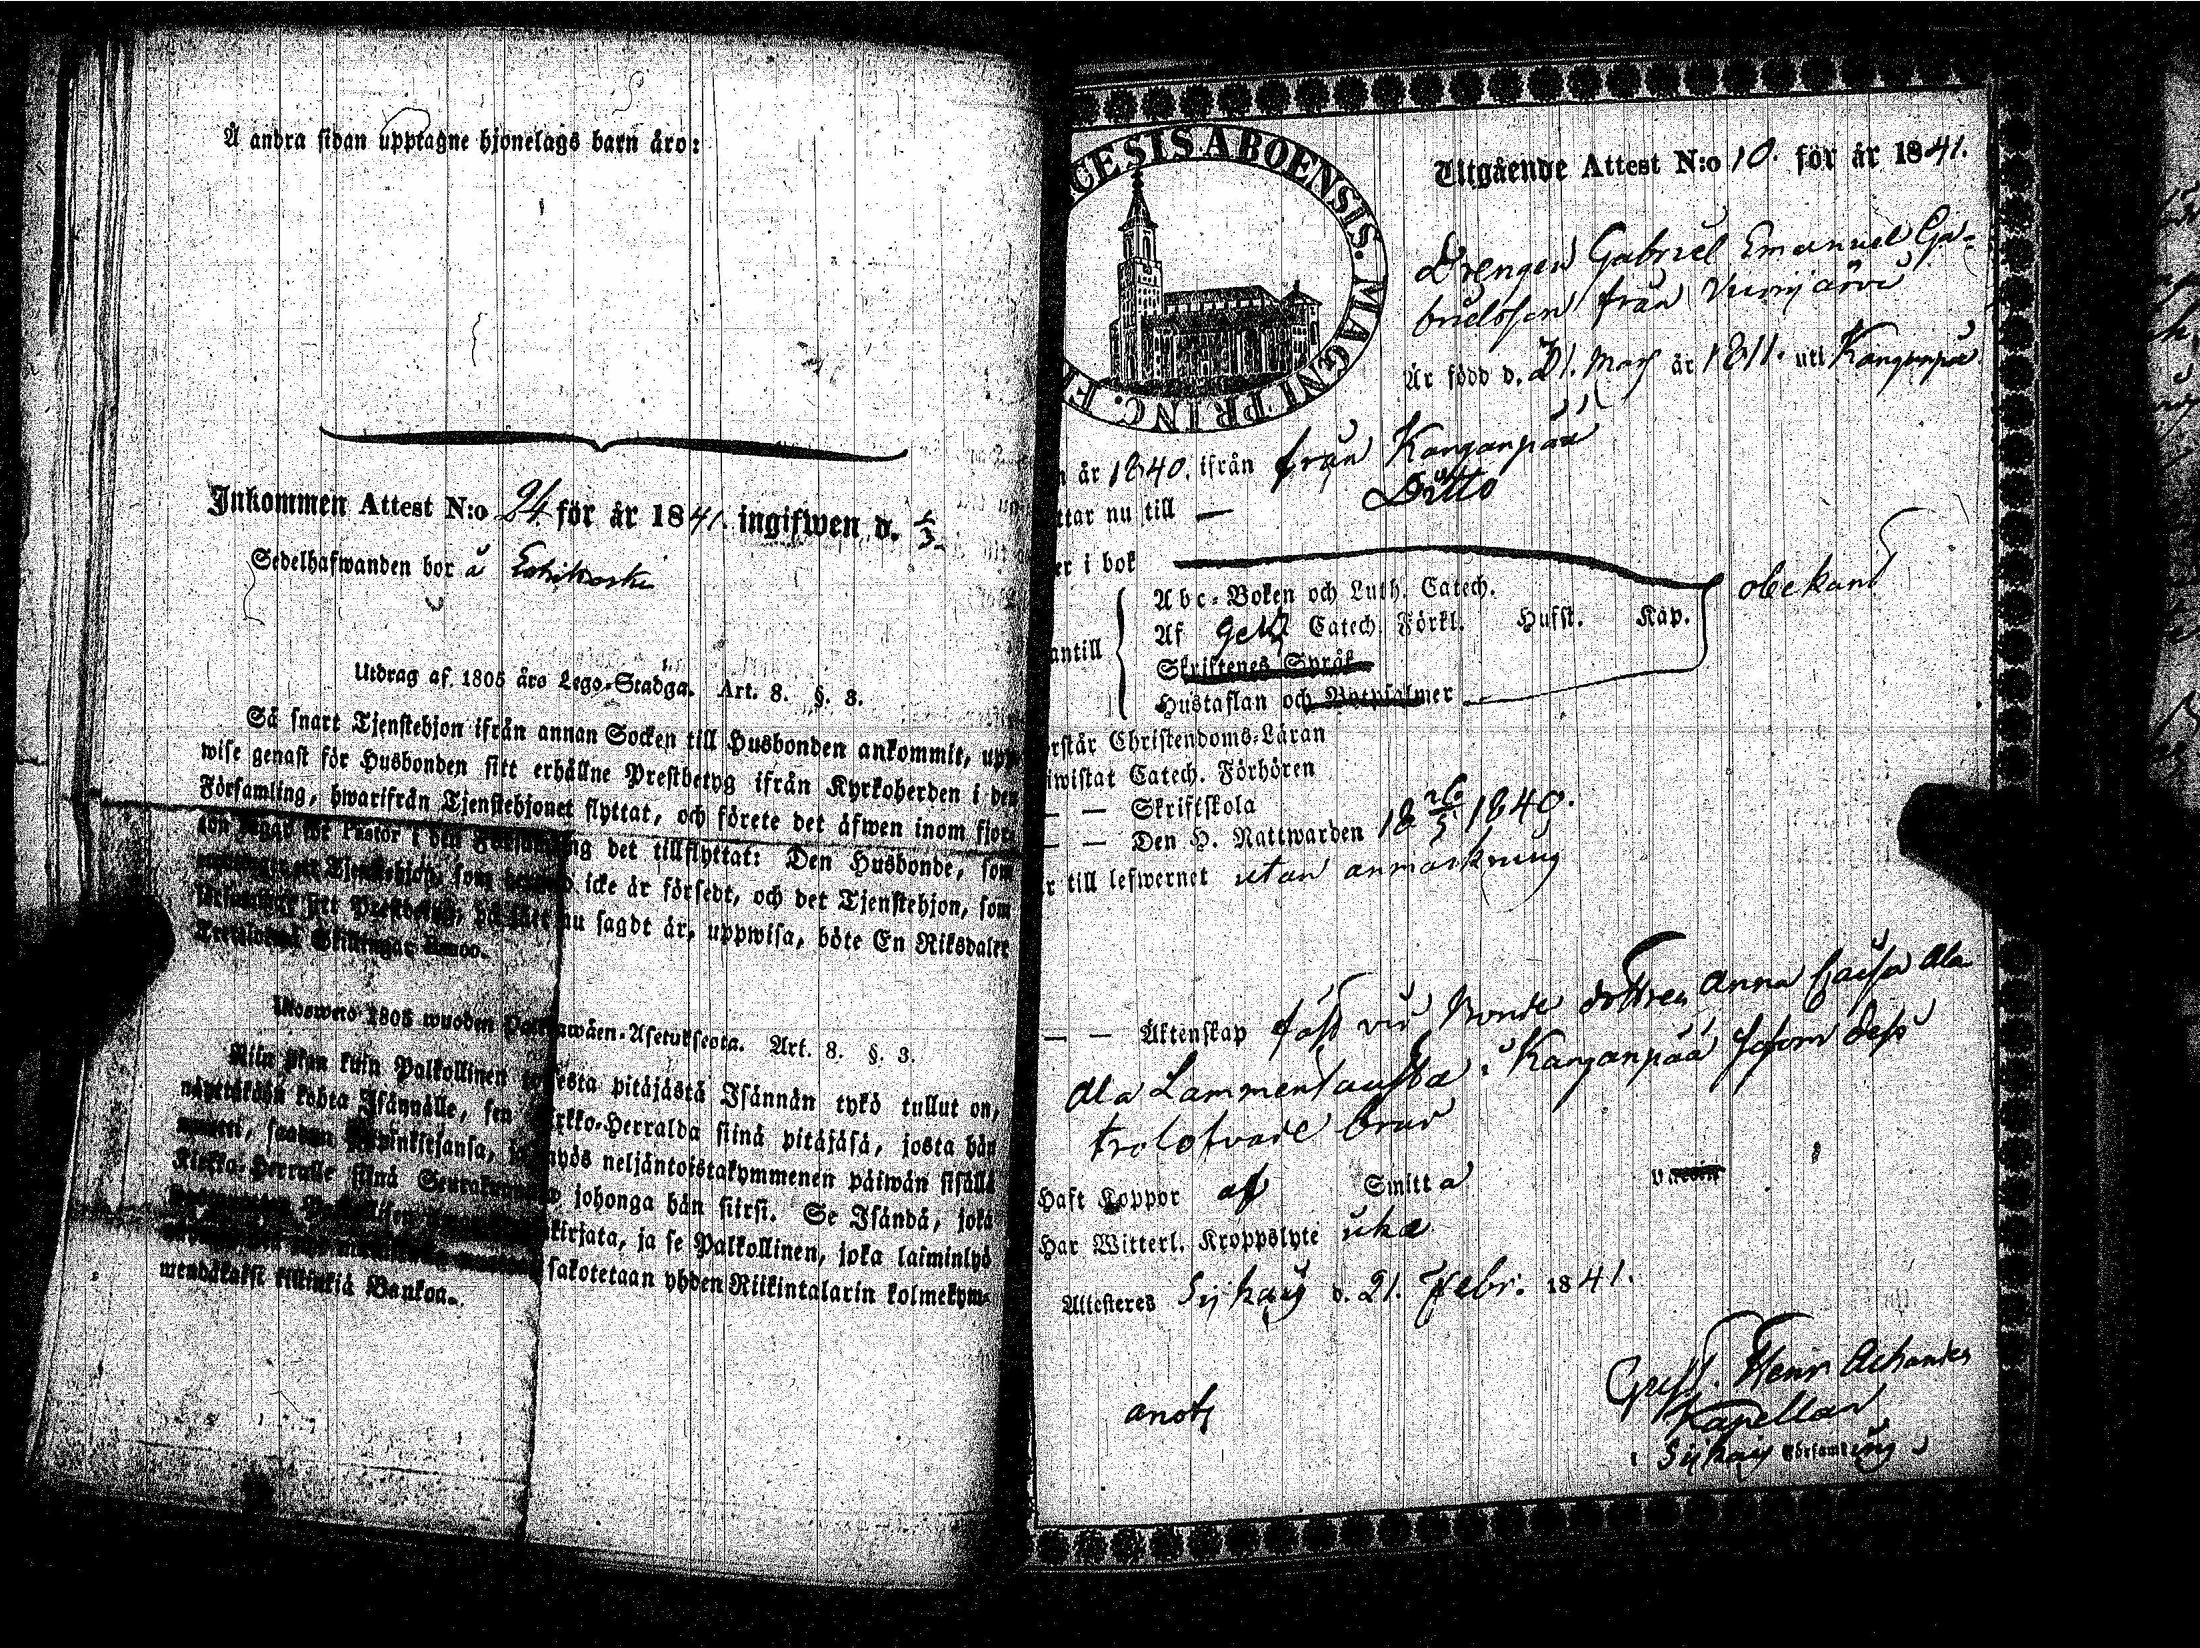 Å andra sidan upptagne hjonelags barn äro:
Inkommen Attest N:o 24. för år 1841. ingifwen d.
Sedelhafwanden bor å
Utdrag af 1805 års Lego-Stadga. Art. 8. §. 3.
Så snart Tjenstehjon ifrån annan Socken till Husbonden ankommit, upp-
wise genast för Husbonden sitt erhållne Prestbetyg ifrån Kyrkoherden i den
Församling, hwarifrån Tjenstehjonet flyttat, och förete det äfwen inom fjor-
det tillflyttat: Den Husbonde, som
icke är försedt, och det Tjenstehjon, som
nu sagdt är, uppwisa, böte En Riksdaler
Skillingar Banco.
Ulosweto 1805 wuoden Palkkawäen-Asetuksesta. Art. 8. §. 3.
Niin pian kuin Palkollinen toisesta pitäjästä Isännän tykö tullut on,
näyttäköön kohta Isännälle, sen Kirkko-Herralda siinä pitäjäsä, josta hän
muutti, saadun ja myös neljäntoistakymmenen päiwän sisällä
Kirkko-Herralle siinä Seurakunnasa johonga hän siirsi. Se Isändä, joka
kirjata, ja se Palkollinen, joka laiminlyö
sakotetaan yhden Riikintalarin kolmekym-
mendäkaksi killinkiä Bankoa.
CESIS ABOENSIS. MAGNI PRINC. F
Utgående Attest N:o 10. för år 1841.
Drengen Gabriel Emanuel Ga-
brielsson från
Är född d. 21. Maj år 1811. uti Kanganpää
år 1840. ifrån från Kanganpää
ttar nu till — Ditto
er i bok
Abc-Boken och Luth. Catech.
Af Catech. Förkl. Hufst. Kap. obekant
antill
Skriftenes Språk
Hustaflan och Botpsalmer
rstår Christendoms-Läran
iwistat Catech. Förhören
— — Skriftskola
— — Den H. Nattwarden 18 26/5 1840.
r till lefwernet utan anmärkning
— — Äktenskap fäst vid Bonde dottren Anna Caisa Ala
Ala Lammentausta i Kanganpää såsom dess
trolofvade Brud
Haft Koppor af Smitta Vaccin
Har Witterl. Kroppslyte icke
Attesteras Sijkais d. 21. Febr. 1841.
Gust. Henr.
Kapellan
i Sijkais Församling
anot.